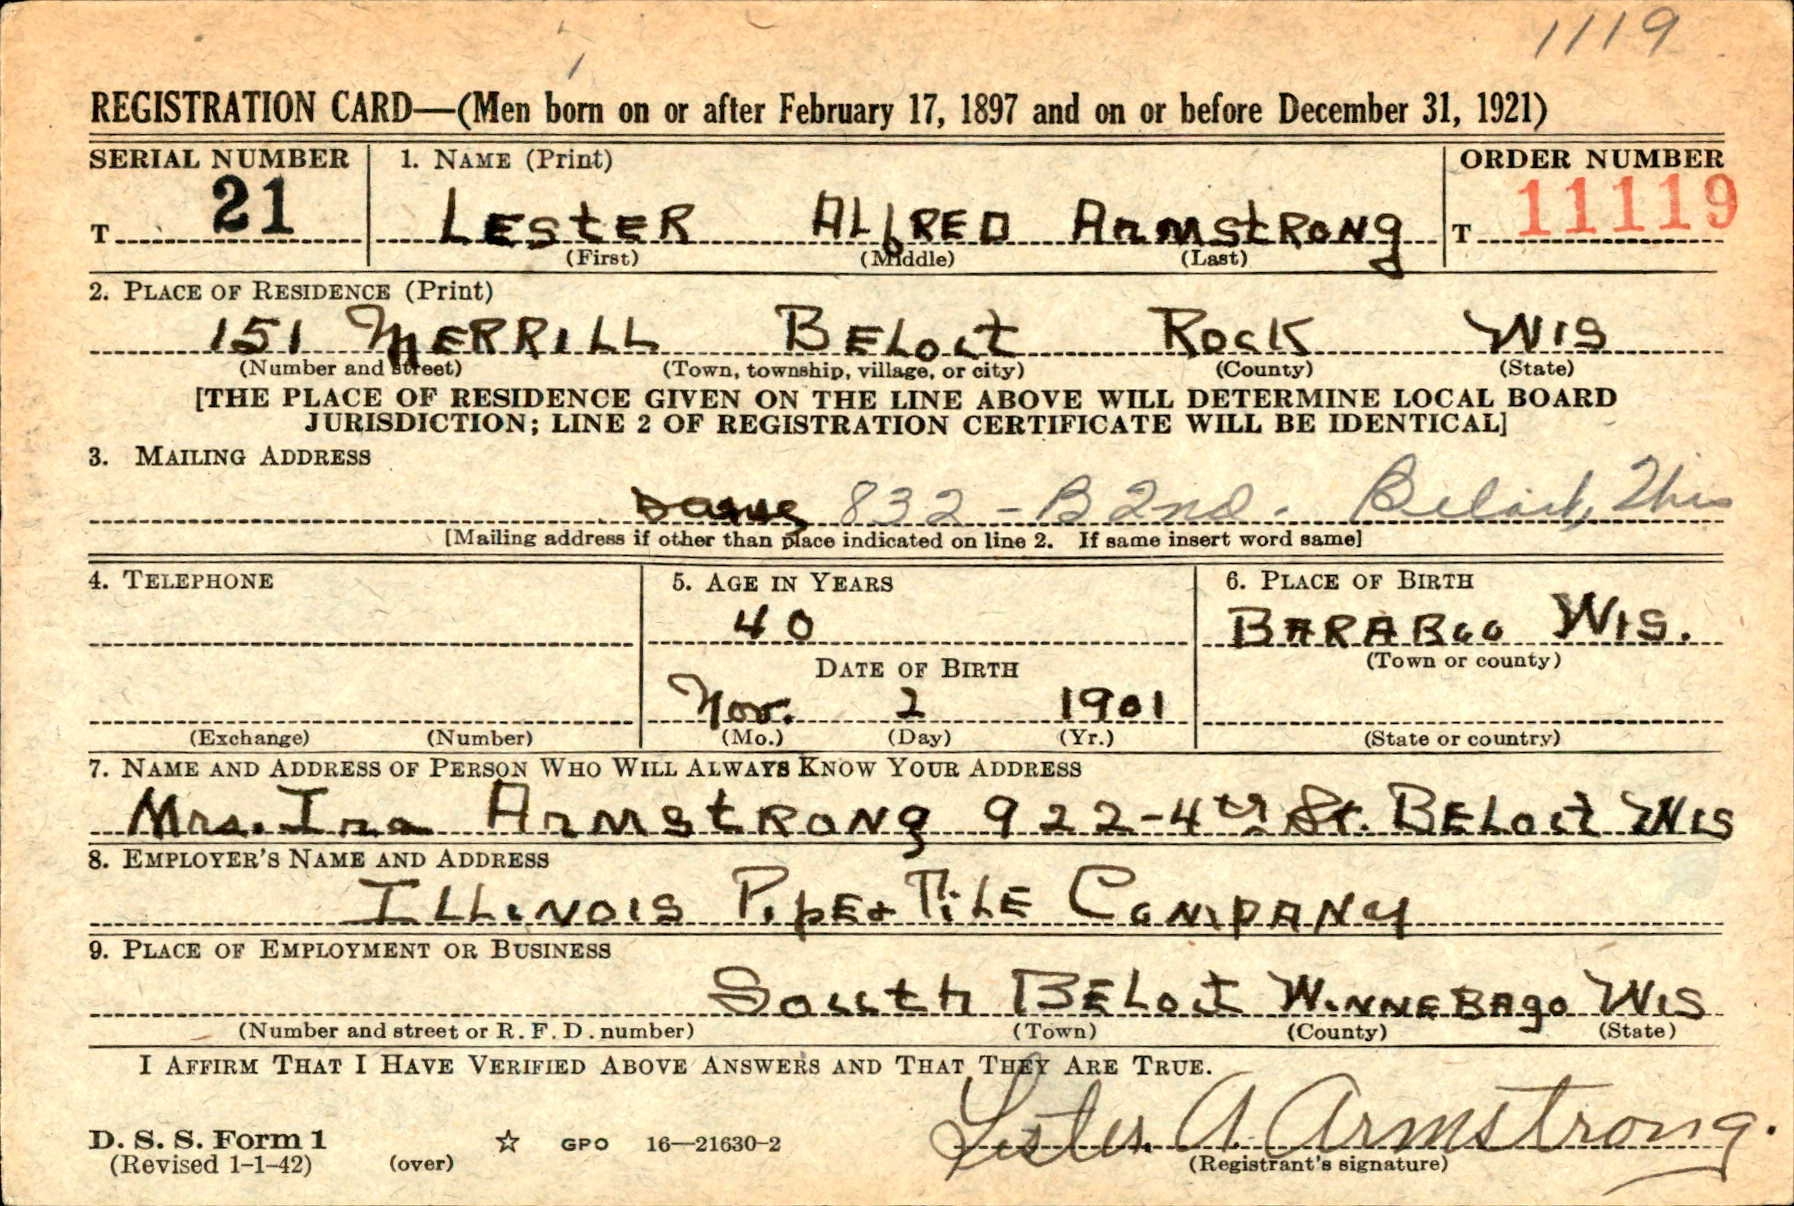 1119
REGISTRATION CARD—(Men born on or after February 17, 1897 and on or before December 31, 1921)
SERIAL NUMBER 1. NAME (Print) ORDER NUMBER
T 21 LESTER ALFRED ARMSTRONG T 11119
(First) (Middle) (Last)
2. PLACE OF RESIDENCE (Print)
151 MERRILL BELOIT ROCK WIS
(Number and street) (Town, township, village, or city) (County) (State)
[THE PLACE OF RESIDENCE GIVEN ON THE LINE ABOVE WILL DETERMINE LOCAL BOARD
JURISDICTION; LINE 2 OF REGISTRATION CERTIFICATE WILL BE IDENTICAL]
3. MAILING ADDRESS
same 832 - B 2nd. Beloit, Wis
[Mailing address if other than place indicated on line 2. If same insert word same]
4. TELEPHONE 5. AGE IN YEARS 6. PLACE OF BIRTH
40 BARABOO WIS.
(Town or county)
DATE OF BIRTH
Nov. 2 1901
(Exchange) (Number) (Mo.) (Day) (Yr.) (State or country)
7. NAME AND ADDRESS OF PERSON WHO WILL ALWAYS KNOW YOUR ADDRESS
Mrs. Ina ARMSTRONG 922-4th St. BELOIT WIS
8. EMPLOYER'S NAME AND ADDRESS
ILLINOIS PIPE + TILE COMPANY
9. PLACE OF EMPLOYMENT OR BUSINESS
SOUTH BELOIT WINNEBAGO WIS
(Number and street or R. F. D. number) (Town) (County) (State)
I AFFIRM THAT I HAVE VERIFIED ABOVE ANSWERS AND THAT THEY ARE TRUE.
Lester A. Armstrong.
D. S. S. Form 1 ☆ GPO 16—21630-2
(Revised 1-1-42) (over) (Registrant's signature)